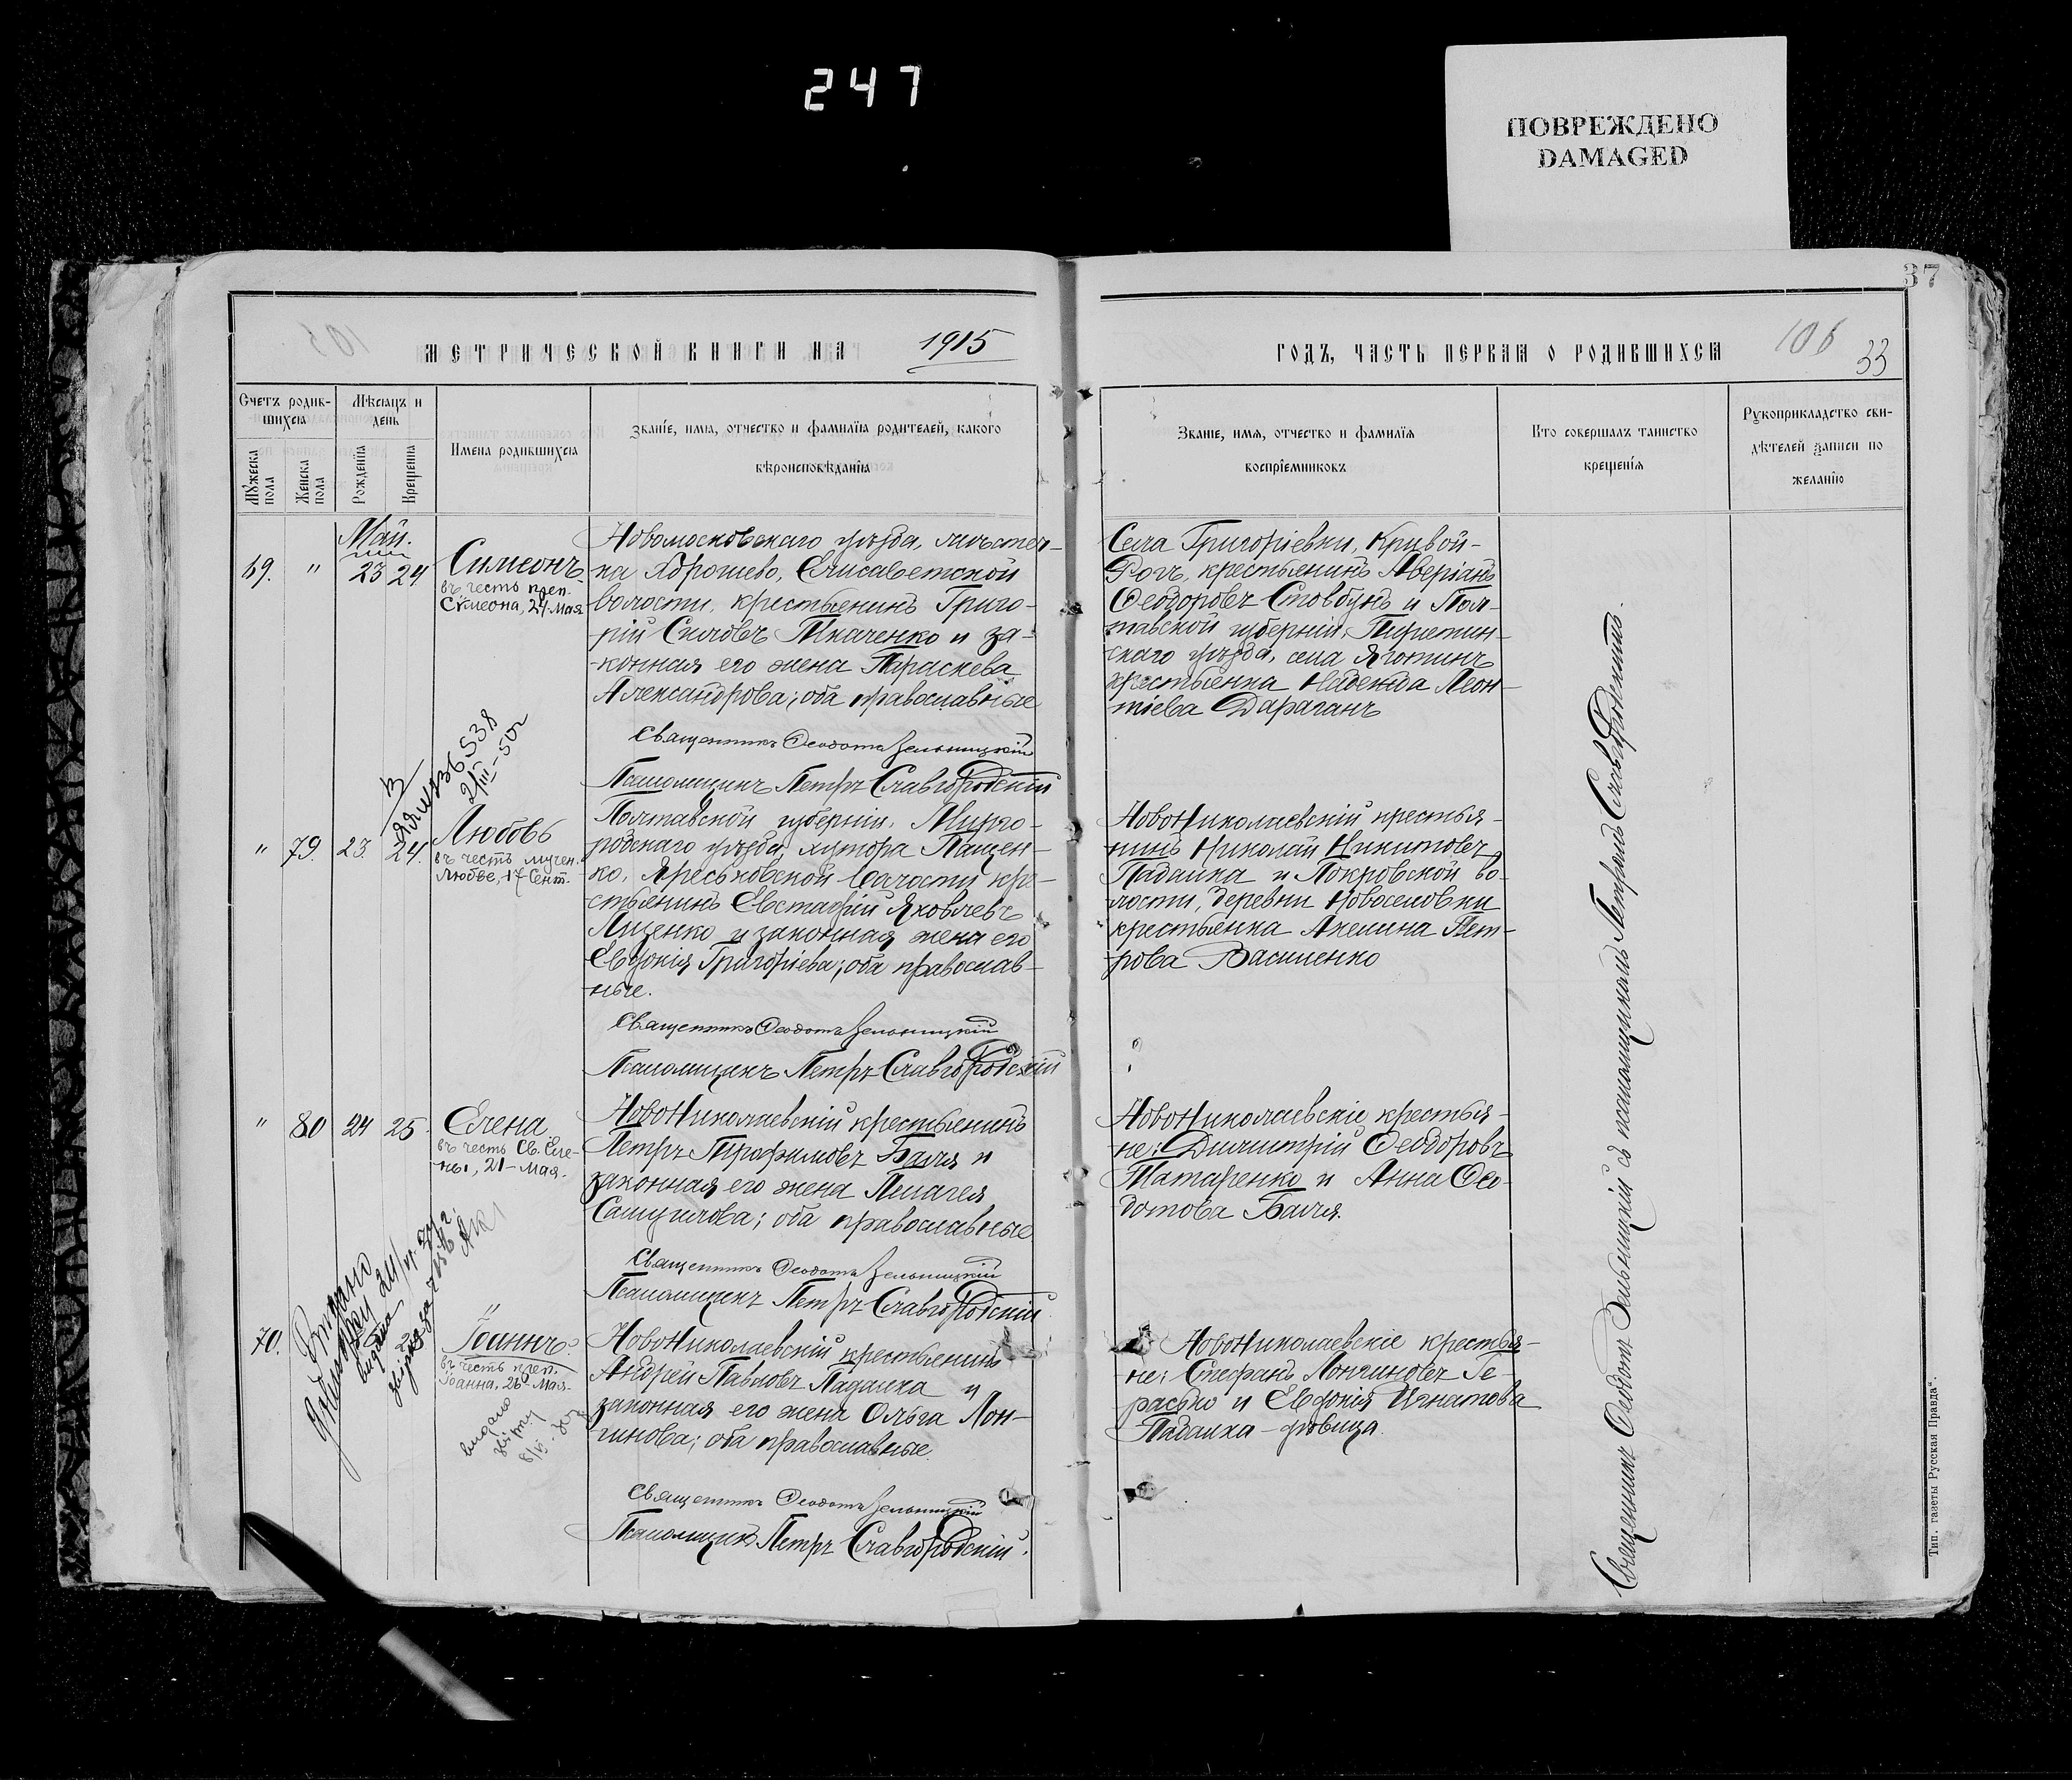 247
ПОВРЕЖДЕНО
DAMAGED
37
МЕТРИЧЕСКОЙ КНИГИ НА 1915
ГОДЪ, ЧАСТЬ ПЕРВАЯ О РОДИВШИХСЯ
106
33
Счетъ родив-
шихся
Мужеска пола
Женска пола
Мѣсяцъ и
день
Рожденїя
Крещенїя
Имена родившихся
Званїе, имя, отчество и фамилїя родителей, какого
вѣроисповѣданїя
Званїе, имя, отчество и фамилїя
воспрїемниковъ
Кто совершалъ таинство
крещенїя
Рукоприкладство сви-
дѣтелей записи по
желанїю
Май.
69. " 23 24
Симеонъ
въ честь преп.
Симеона, 24 Мая
Новомосковскаго уѣзда, мѣстеч-
ка Хорошево, Елисаветской
волости, крестьянинъ Григо-
рій Силовъ Ткаченко и за-
конная его жена Параскева
Александрова; оба православные
Священникъ Ѳеодотъ Зельницкій
Псаломщикъ Петръ Славгородскій
Села Григоріевки, Кривой-
Рогъ, крестьянинъ Аверіанъ
Ѳеодоровъ Стовбунъ и Пол-
тавской губерніи, Пирятин-
скаго уѣзда, села Яготинъ
крестьянка Надежда Леон-
тіева Дараганъ
" 79. 23. 24.
Любовь
въ честь мучен.
Любве, 17 Сент.
Полтавской губерніи, Мирго-
родскаго уѣзда, хутора Пащен-
ко, Яреськовской волости кре-
стьянинъ Евстафій Яковлевъ
Яценко и законная жена его
Евдокія Григоріева; оба православ-
ные.
Священникъ Ѳеодотъ Зельницкій
Псаломщикъ Петръ Славгородскій
НовоНиколаевскій крестья-
нинъ Николай Никитовъ
Падалка и Покровской во-
лости, деревни Новоселовки
крестьянка Акелина Пет-
рова Василенко
" 80 24 25.
Елена
въ честь Св. Еле-
ны, 21-Мая.
НовоНиколаевскій крестьянинъ
Петръ Трофимовъ Балля и
законная его жена Пелагея
Самуилова; оба православные
Священникъ Ѳеодотъ Зельницкій
Псаломщикъ Петръ Славгородскій
НовоНиколаевскіе крестья-
не: Димитрій Ѳеодоровъ
Татаренко и Анна Ѳео-
дотова Балля.
70.
Іоаннъ
въ честь преп.
Іоанна, 26-Мая
НовоНиколаевскій крестьянинъ
Андрей Павловъ Падалка и
законная его жена Ольга Лон-
гинова; оба православные.
Священникъ Ѳеодотъ Зельницкій
Псаломщикъ Петръ Славгородскій.
НовоНиколаевскіе крестья-
не: Стефанъ Лонгиновъ Ге-
расько и Евдокія Игнатова
Падалка - дѣвица.
Священникъ Ѳеодотъ Зельницкій съ псаломщикомъ Петромъ Славгородскимъ.
Тип. газеты Русская Правда".